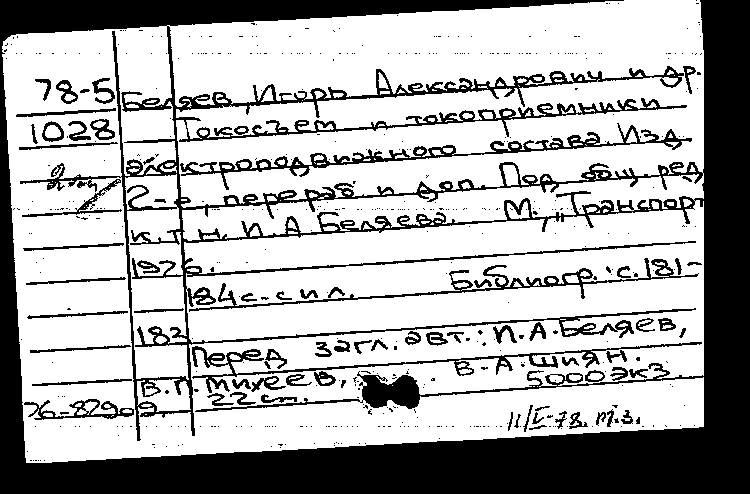 78-5 Беляев, Игорь Александрович и др.
1028 Токосъем и токоприемники
электроподвижного состава. Изд.
2-е, перераб и доп. Под общ. ред.
к.т.н. И.А Беляева. М., „Транспорт
1976.
184 с. с ил. Библиогр.: с. 181-
182
Перед загл. авт.: И.А.Беляев,
В.П. Михеев, В.А. Шиян.
22 см. 5000 экз.
76-82909.
-78. т.з.